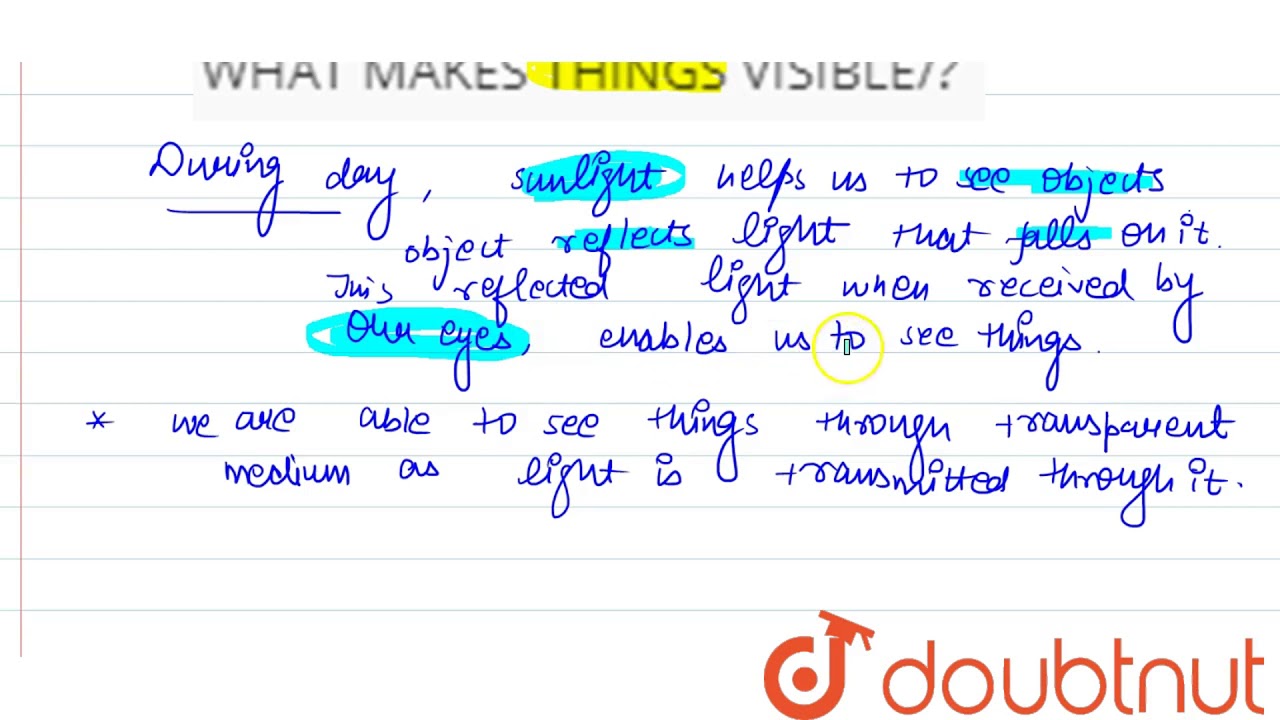 WHAT MAKES THINGS VISIBLE/?
During day, sunlight helps us to see objects
object reflects light that falls on it.
This reflected light when received by
Our eyes, enables us to see things.
* we are able to see things through transparent
medium as light is transmitted through it.
doubtnut